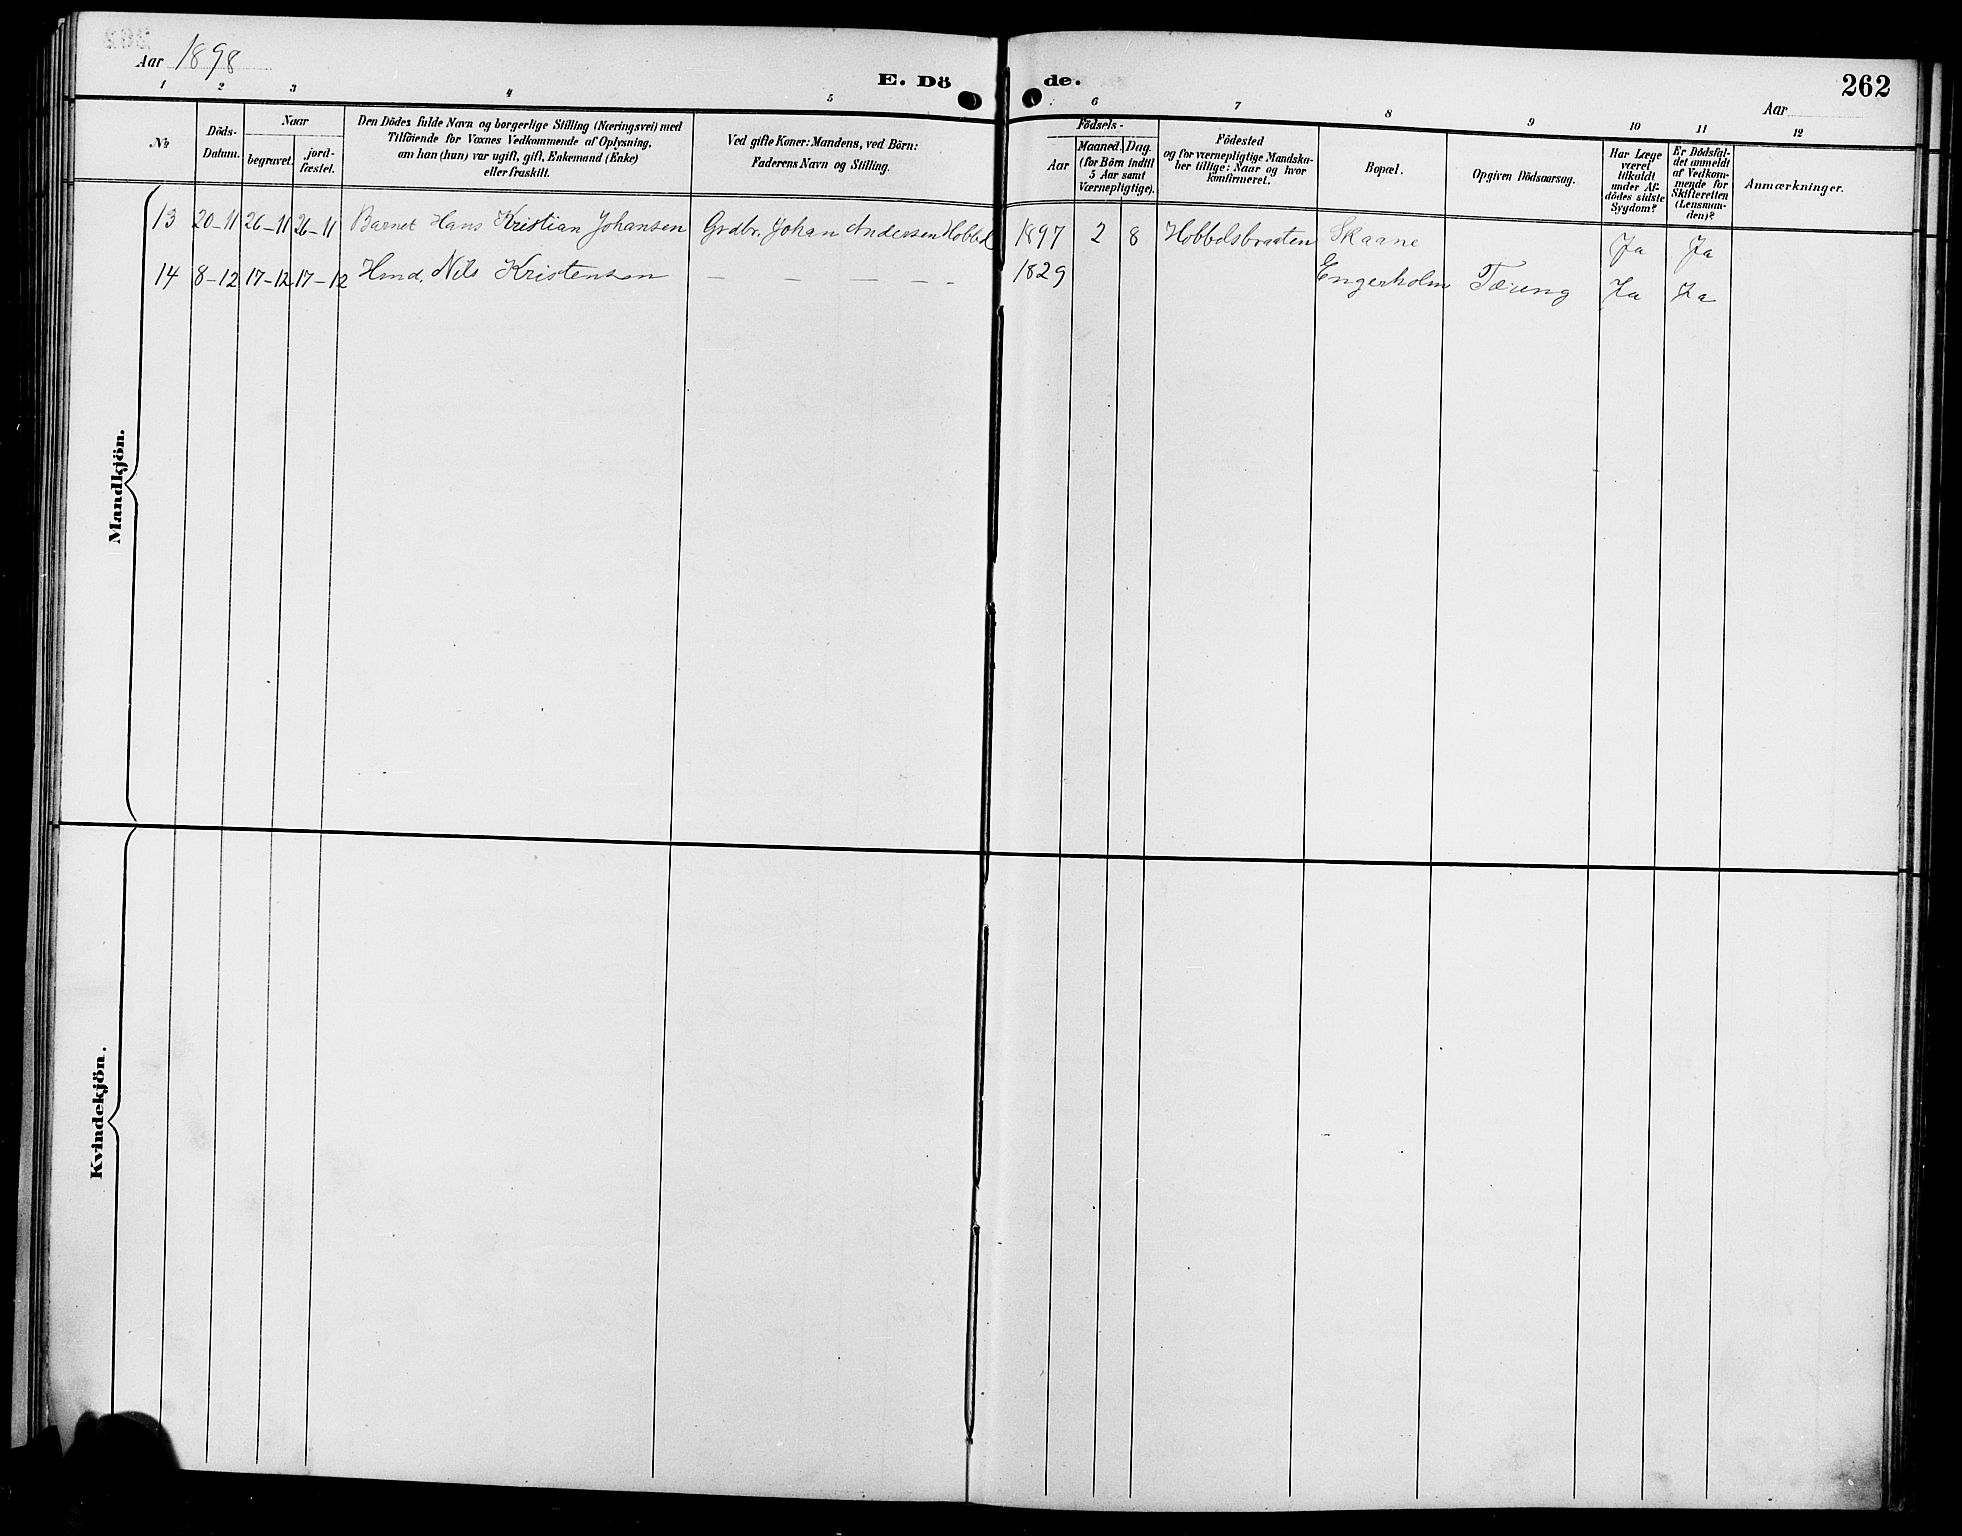 Aar 1898
E. Dö de.
262
Aar
1 2 3 4 5 6 7 8 9 10 11 12
№
Döds-
Datum.
Naar
begravet.
jord-
fæstet.
Den Dödes fulde Navn og borgerlige Stilling (Næringsvei) med
Tilföiende for Voxnes Vedkommende af Oplysning,
om han (hun) var ugift, gift, Enkemand (Enke)
eller fraskilt.
Ved gifte Koner: Mandens, ved Börn:
Faderens Navn og Stilling.
Födsels-
Aar
Maaned. Dag.
(for Börn indtil
5 Aar samt
Værnepligtige).
Födested
og for værnepligtige Mandska-
ber tillige: Naar og hvor
konfirmeret.
Bopæl.
Opgiven Dödsaarsag.
Har Læge
været
tilkaldt
under Af-
dödes sidste
Sygdom?
Er Dödsfal-
det anmeldt
af Vedkom-
mende for
Skifteretten
(Lensman-
den)?
Anmærkninger.
13 20-11 26-11 26-11 Barnet Hans Kristian Johansen Grdbr. Johan Andersen Hobbøl 1897 2 8 Hobbølsbraaten Skaane Ja Ja
14 8-12 17-12 17-12 Hmd. Nils Kristensen — — — — - 1829 Engerholm Tæring Ja Ja
Mandkjön.
Kvindekjön.